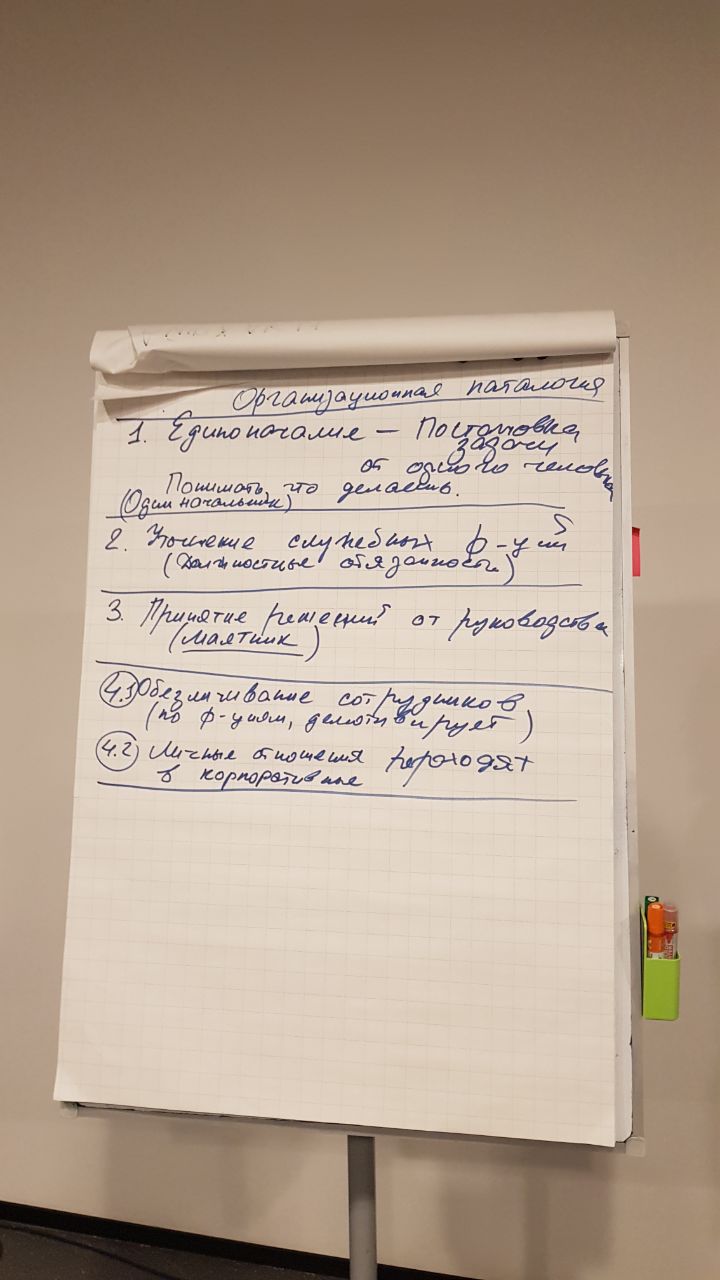 Организационная паталогия
1. Единоначалие — Постановка
задачи
от одного человека
Понимать, что делаешь.
(Один начальник)
2. служебных ф-ций
(Должностные обязанности)
3. Принятие решений от руководства
(маятник)
4.1 Обезличивание сотрудников
(по ф-циям, демотивирует)
4.2 Личные отношения переходят
в корпоративные